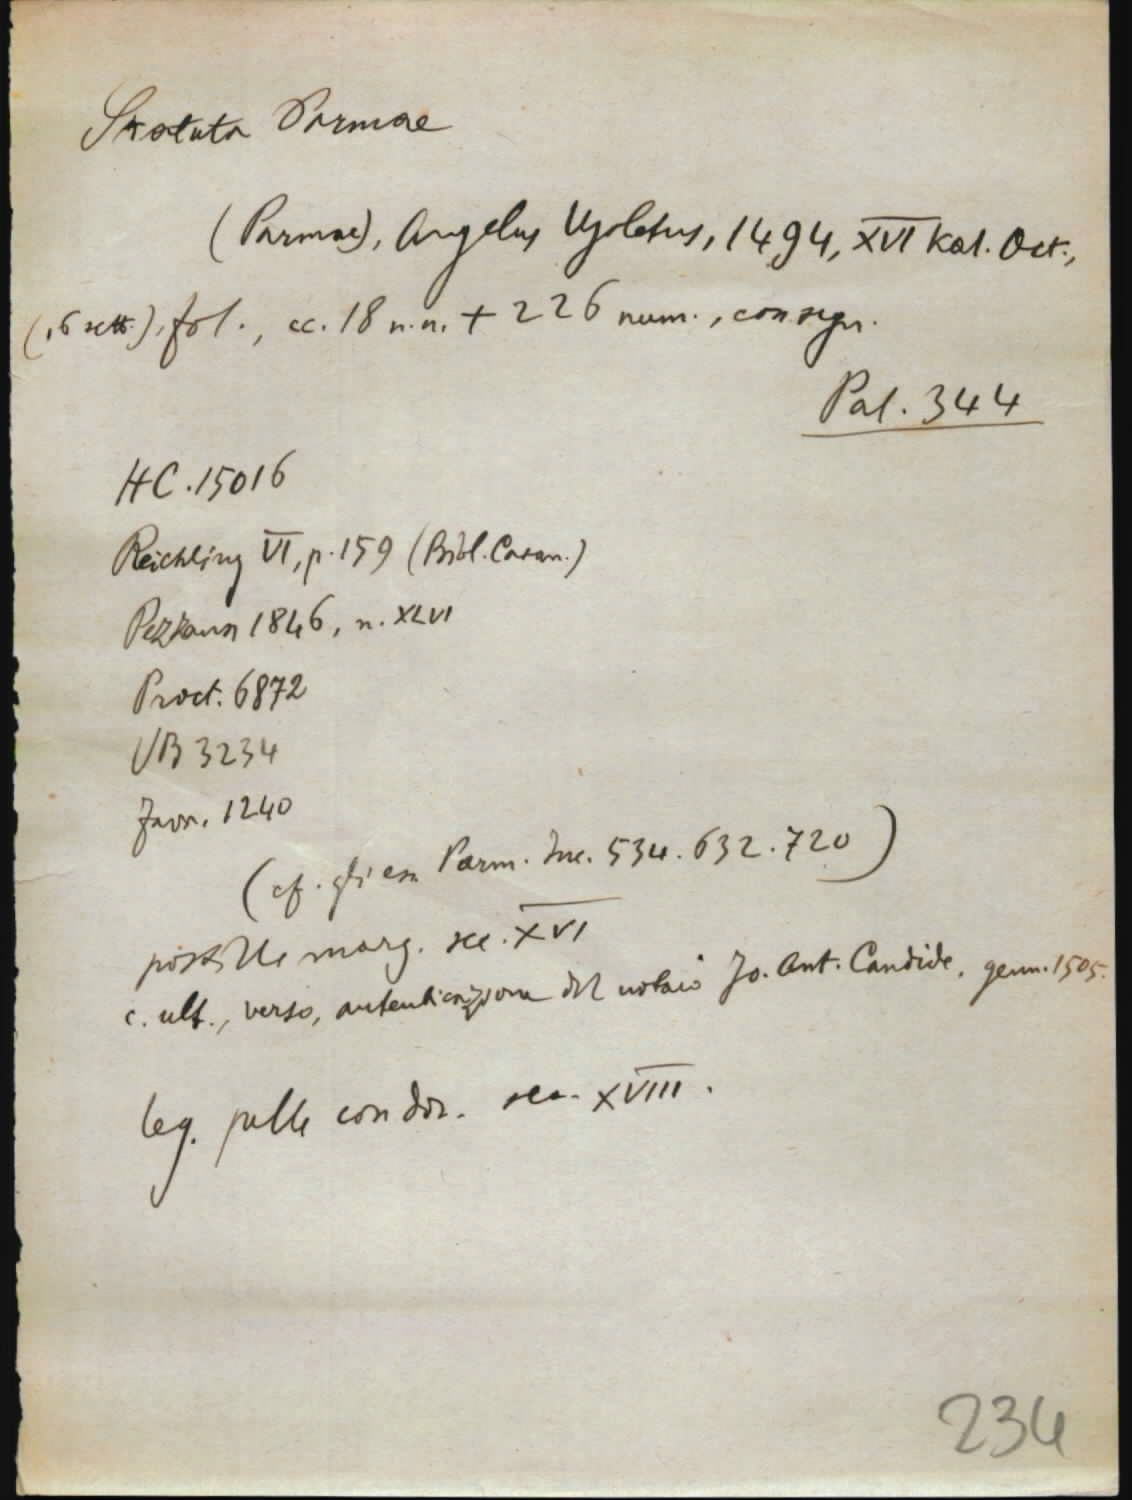 Statuta Parmae
(Parmae), Angelus Ugoletus, 1494, XVI Kal. Oct.,
(16 sett.), fol., cc. 18 n.n. + 226 num., con segn.
Pal. 344
HC. 15016
Reichling VI, p. 159 (Bibl. Casan.)
Pezzana 1846, n. XLVI
Proct. 6872
VB 3234
Favr. 1240
(cf. gli es. Parm. Inc. 534. 632. 720)
postille marg. sec. XVI
c. ult., verso, autenticazione del notaio Jo. Ant. Candide, genn. 1505.
leg. pelle con dor. sec. XVIII.
234